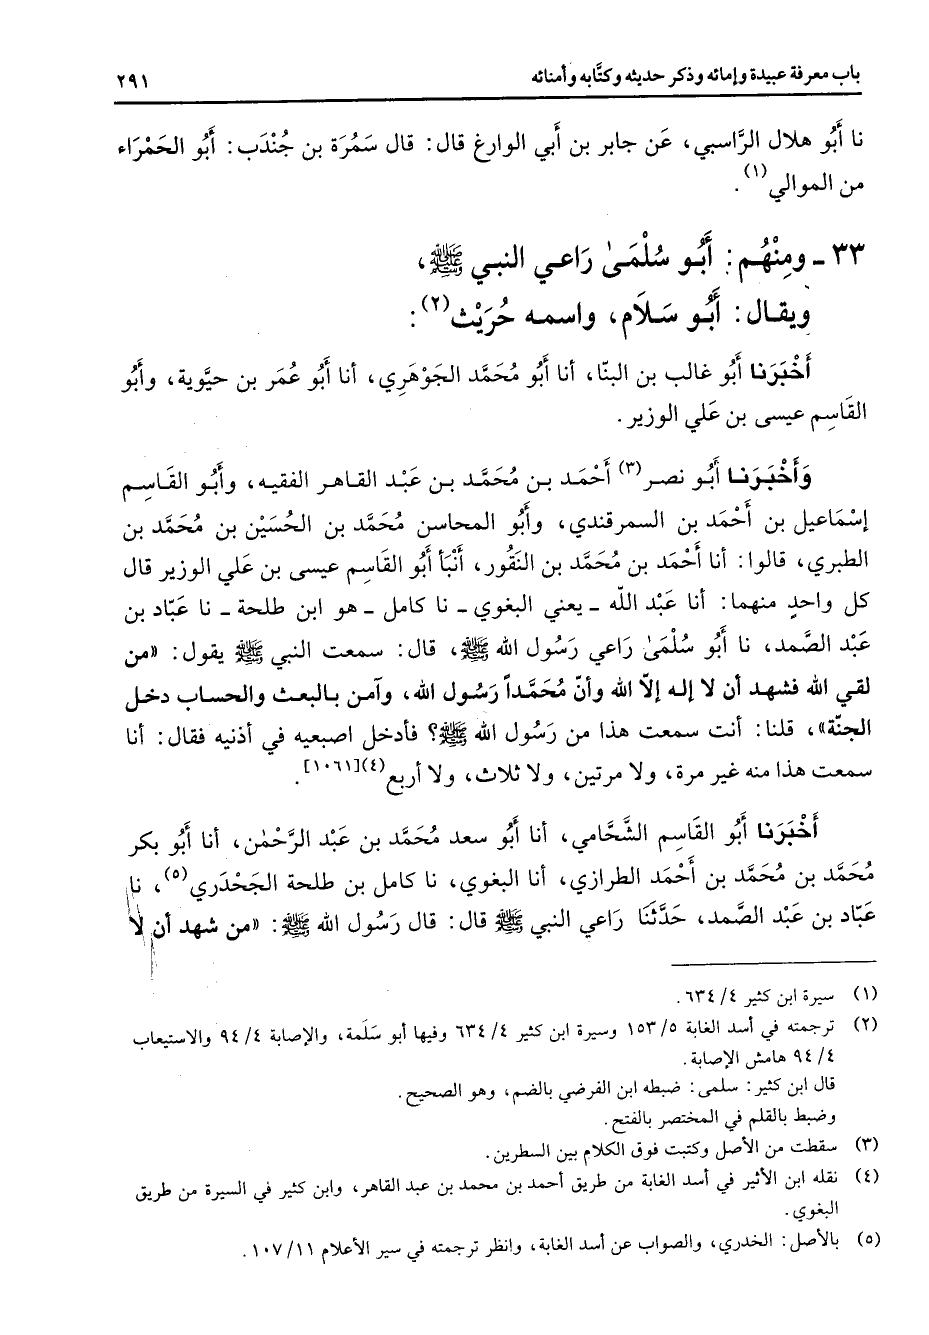 باب معرفة عبيدة وإمائه وذكر حديثه وكتَّابه وأمنائه ٢٩١
نا أَبُو هلال الرَّاسبي، عَن جابر بن أَبي الوارغ قال: قال سَمُرَة بن جُنْدَب: أَبُو الحَمْرَاء
من الموالي(١).
٣٣ ـ ومِنْهُم: أَبُو سُلْمَىٰ رَاعي النبي ﷺ،
ويقال: أَبُو سَلَام، واسمه حُرَيْث(٢):
أَخْبَرَنا أَبُو غالب بن البنّا، أنا أَبُو مُحَمَّد الجَوْهَرِي، أنا أَبُو عُمَر بن حيَّوية، وأَبُو
القَاسِم عيسى بن عَلي الوزير.
وَأَخْبَرَنا أَبُو نصر(٣) أَحْمَد بن مُحَمَّد بن عَبْد القاهر الفقيه، وأَبُو القَاسِم
إسْمَاعيل بن أَحْمَد بن السمرقندي، وأَبُو المحاسن مُحَمَّد بن الحُسَيْن بن مُحَمَّد بن
الطبري، قالوا: أنا أَحْمَد بن مُحَمَّد بن النَقُور، أَنْبَأ أَبُو القَاسِم عيسى بن عَلي الوزير قال
كل واحدٍ منهما: أنا عَبْد اللّه ـ يعني البغوي ـ نا كامل ـ هو ابن طلحة ـ نا عَبّاد بن
عَبْد الصَّمد، نا أَبُو سُلْمَىٰ رَاعي رَسُول الله ﷺ، قال: سمعت النبي ﷺ يقول: «من
لقي الله فشهد أن لا إله إلاّ الله وأنّ مُحَمَّداً رَسُول الله، وآمن بالبعث والحساب دخل
الجنّة»، قلنا: أنت سمعت هذا من رَسُول الله ﷺ؟ فأدخل اصبعيه في أذنيه فقال: أنا
سمعت هذا منه غير مرة، ولا مرتين، ولا ثلاث، ولا أربع(٤)[١٠٦١].
أَخْبَرَنا أَبُو القَاسِم الشَّحَّامي، أنا أَبُو سعد مُحَمَّد بن عَبْد الرَّحْمٰن، أنا أَبُو بكر
مُحَمَّد بن مُحَمَّد بن أَحْمَد الطرازي، أنا البغوي، نا كامل بن طلحة الجَحْدَري(٥)، نا
عَبّاد بن عَبْد الصَّمد، حَدَّثَنَا رَاعي النبي ﷺ قال: قال رَسُول الله ﷺ: «من شهد أن لا
(١) سيرة ابن كثير ٤/ ٦٣٤.
(٢) ترجمته في أسد الغابة ٥/ ١٥٣ وسيرة ابن كثير ٤/ ٦٣٤ وفيها أبو سَلَمة، والإصابة ٤/ ٩٤ والاستيعاب
٤/ ٩٤ هامش الإصابة.
قال ابن كثير: سلمى: ضبطه ابن الفرضي بالضم، وهو الصحيح.
وضبط بالقلم في المختصر بالفتح.
(٣) سقطت من الأصل وكتبت فوق الكلام بين السطرين.
(٤) نقله ابن الأثير في أسد الغابة من طريق أحمد بن محمد بن عبد القاهر، وابن كثير في السيرة من طريق
البغوي.
(٥) بالأصل: الخدري، والصواب عن أسد الغابة، وانظر ترجمته في سير الأعلام ١١/ ١٠٧.